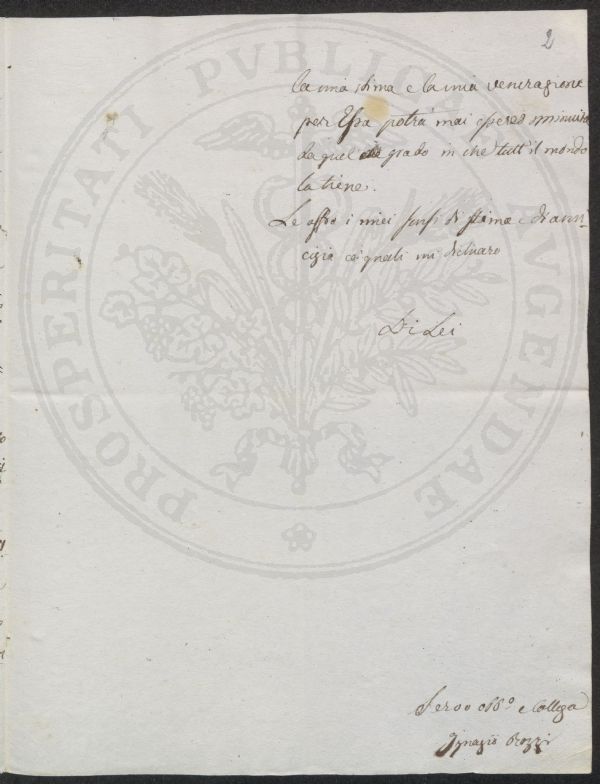 2
la mia stima e la mia venerazione
per Essa potrà mai essere sminuita
da quel grado in che tutt'il mondo
la tiene.
Le offro i miei sensi di stima e di ami,,
cizia co' quali mi dichiaro
Di Lei
Servo obb.o e Collega
Ignazio Rozzi
PROSPERITATI PVBLICAE AVGENDAE